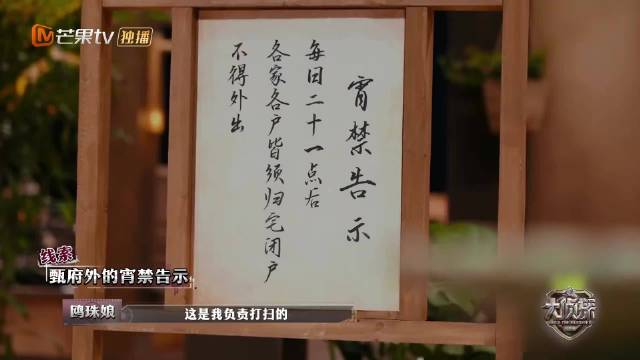 芒果tv 独播
宵禁告示
每日二十一点后
各家各户皆须归宅闭户
不得外出
线索
甄府外的宵禁告示
鸥珠娘
这是我负责打扫的
大侦探